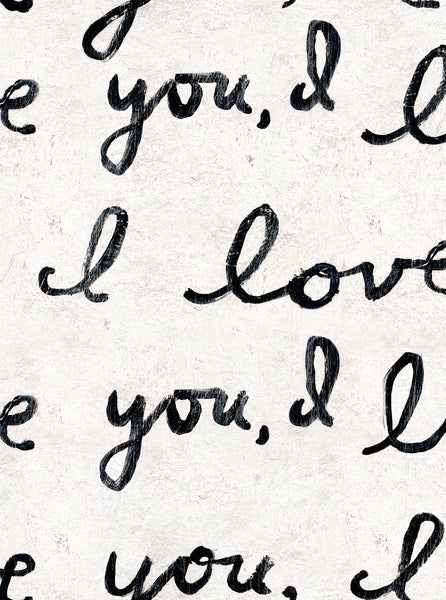 e you, I l
I love
e you, I l
e you, l